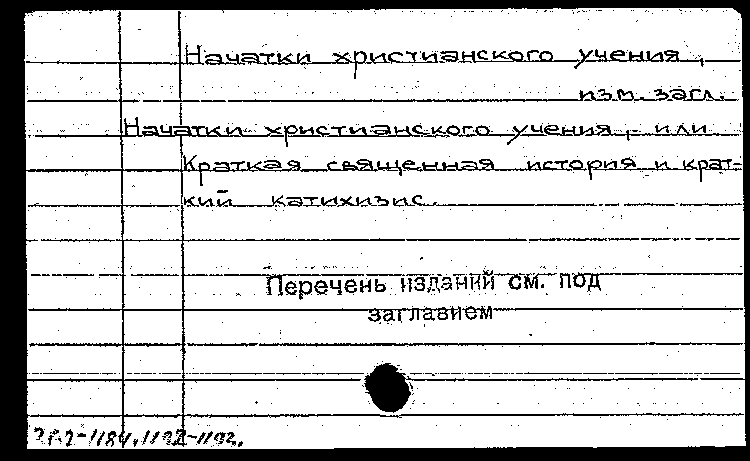 Начатки христианского учения,
изм. загл.
Начатки христианского учения, или
Краткая священная история и крат-
кий катихизис.
Перечень изданий см. под
заглавием